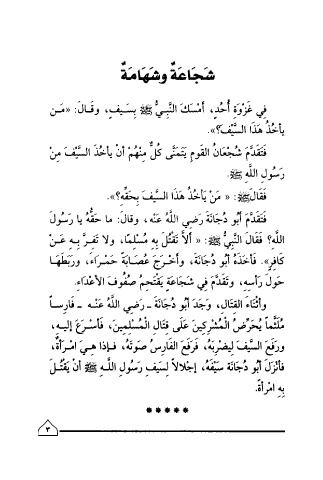 شَجَاعَةٌ وشَهَامَةٌ
فِي غَزْوَةِ أُحُدٍ، أَمْسَكَ النَّبِيُّ ﷺ بِسَيفٍ، وقَالَ: «مَن
يأخُذُ هَذَا السَّيْفَ؟».
فَتَقَدَّمَ شُجْعَانُ القَومِ يَتَمَنَّى كُلٌّ مِنْهُمْ أنْ يأخُذَ السَّيْفَ مِنْ
رَسُولِ اللَّهِ ﷺ.
فَقَالَ ﷺ: « مَنْ يَأْخُذُ هَذَا السَّيفَ بِحَقِّهِ؟».
فَتَقَدَّمَ أَبُو دُجَانَةَ رَضِي اللَّهُ عَنْه، وقَالَ: ما حَقُّهُ يا رَسُولَ
اللَّهِ؟ فَقَالَ النَّبِيُّ ﷺ: « ألاَّ تَقْتُلَ بِهِ مُسْلِمًا، ولا تَفِرَّ بِهِ عَنْ
كَافِرٍ». فَأَخَذَهُ أبُو دُجَانَةَ، وأَخْرَجَ عُصَابَةً حَمْرَاءَ، ورَبَطَهَا
حَوْلَ رَأسِهِ، وتَقَدَّمَ فِي شَجَاعَةٍ يَقْتَحِمُ صُفُوفَ الأعْدَاءِ.
وأثْنَاءَ القِتَالِ، وَجَدَ أبُو دُجَانَةَ ـ رَضِي اللَّهُ عَنْه ـ فَارِساً
مُلَثَّماً يُحَرِّضُ المُشْرِكِينَ عَلَى قِتَالِ المُسْلِمِينَ، فَأسْرَعَ إليهِ،
ورَفَعَ السَّيفَ لِيضْرِبَهُ، فَرَفَعَ الفَارِسُ صَوتَهُ، فَإذا هِيَ امْرَأةٌ،
فأنْزَلَ أبُو دُجَانَةَ سَيْفَهُ، إجْلالاً لِسَيفِ رَسُولِ اللَّهِ ﷺ أنْ يَقْتُلَ
بِهِ امْرأةً.
*****
٣